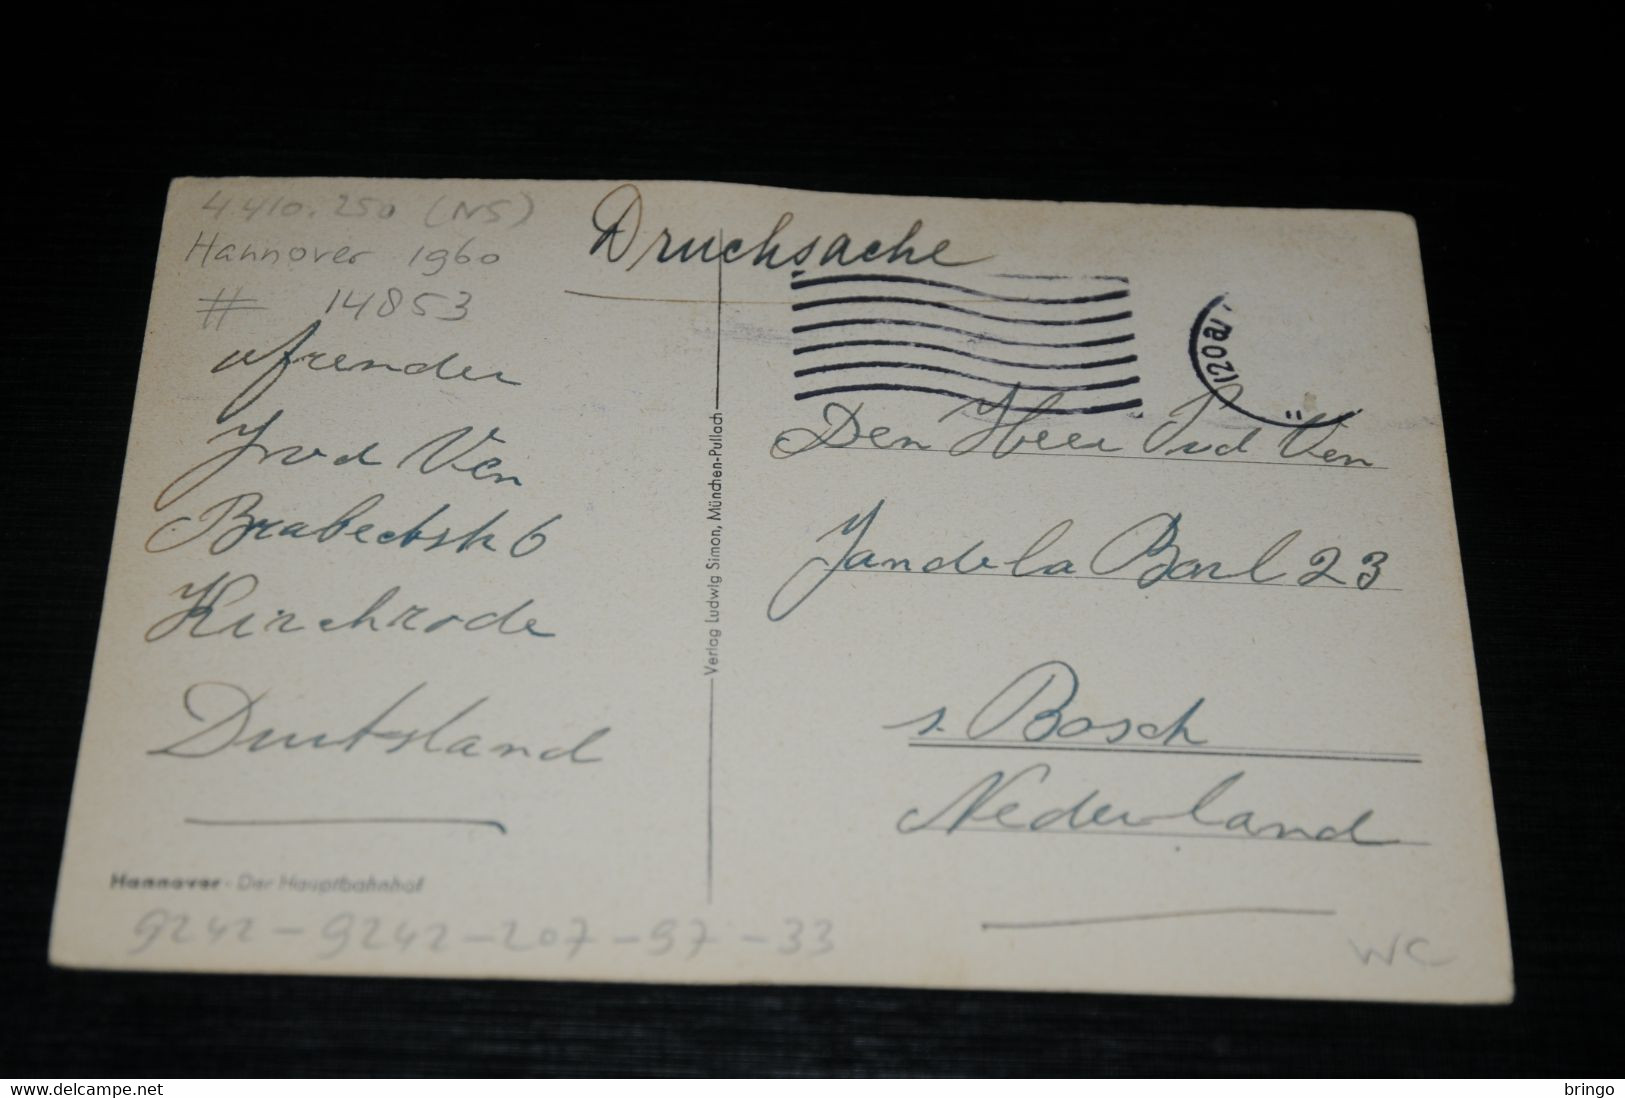 4410.250 (NS)
Hannover 1960
# 14853
Drucksache
afzender
Ven
Brabeckstr 6
Kirchrode
Duitsland
Hannover - Der Hauptbahnhof
9242 - 9242 - 207 - 97 - 33
Verlag Ludwig Simon, München-Pullach
Den Heer Ven
23
s. Bosch
Nederland
WC
bringo